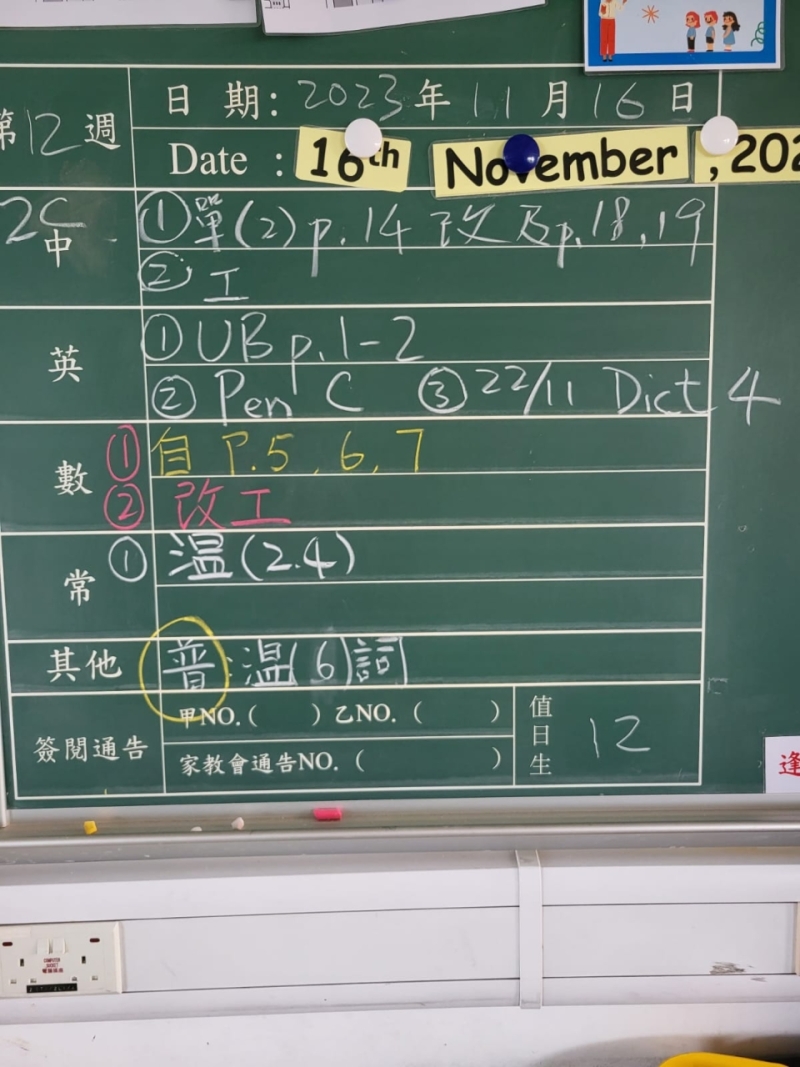 第12週
日 期: 2023年 11 月 16 日
Date : 16th November , 202
2C
中
①單(2) p.14 改及p.18,19
② 工
英
① UB p.1-2
② Pen C ③ 22/11 Dict 4
數
① 自 P.5, 6, 7
② 改工
常
① 溫(2.4)
其他
普:溫(6)詞
簽閱通告
甲NO.( )乙NO. ( )
家教會通告NO. ( )
值日生
12
逢